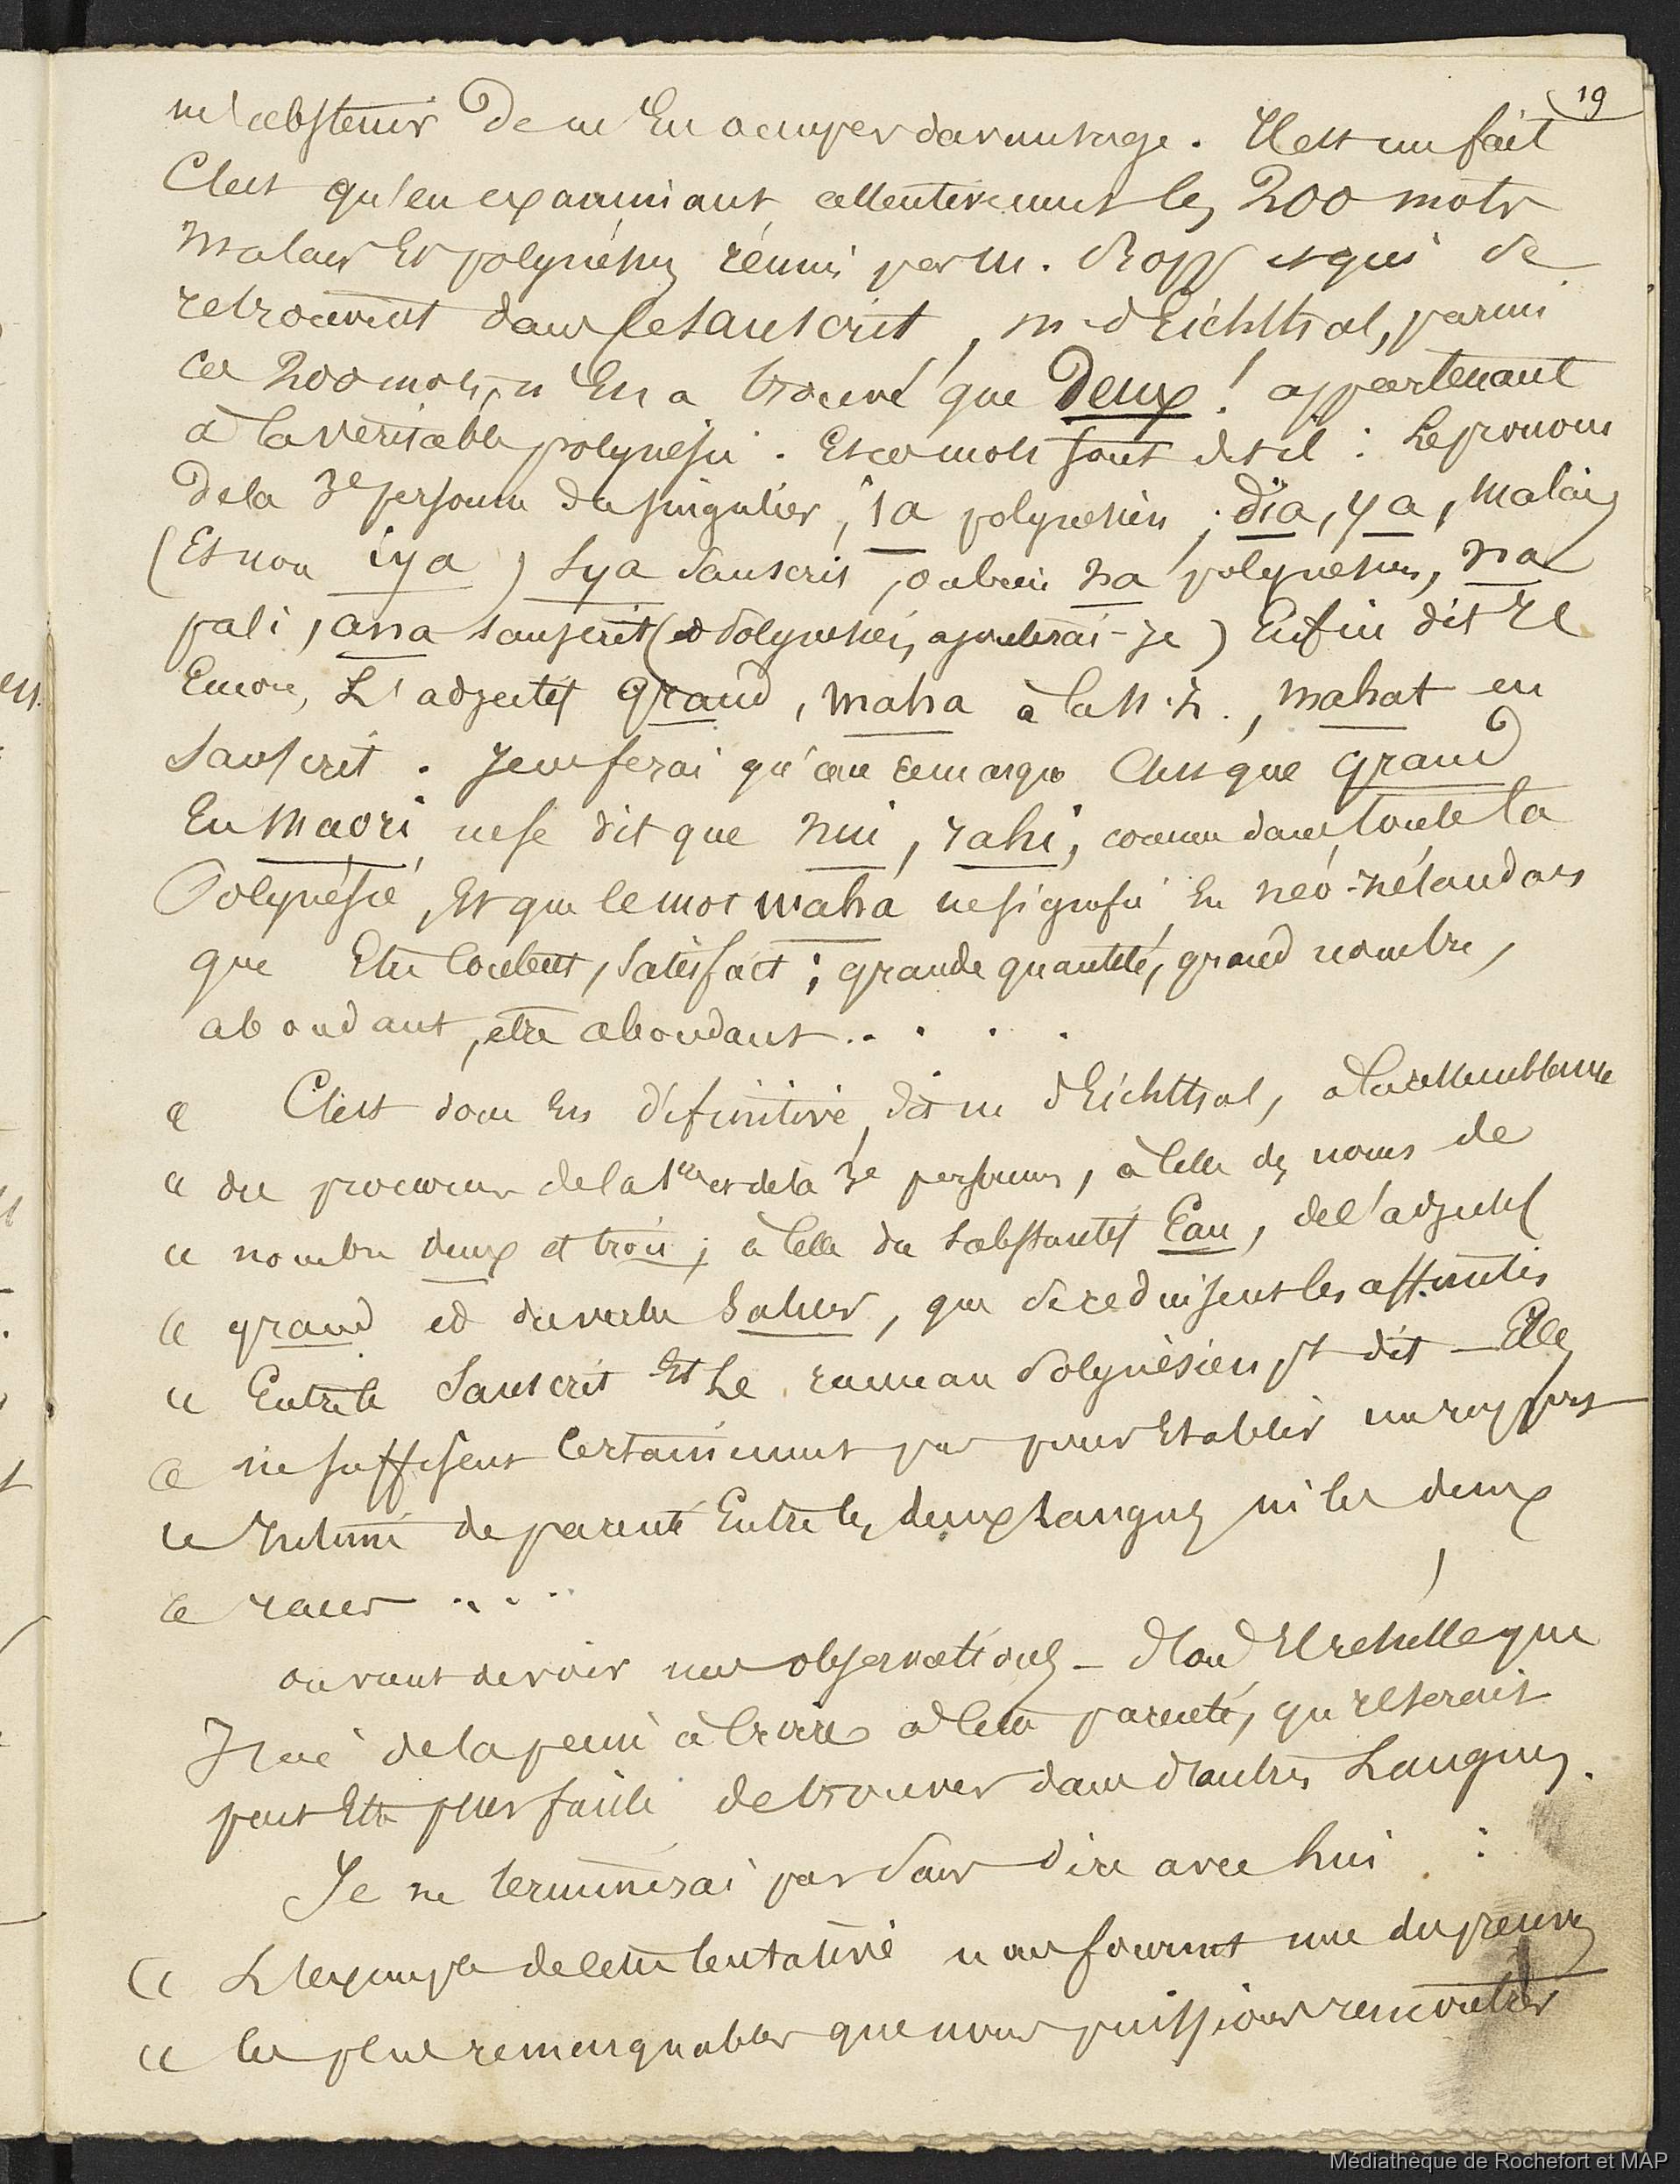 19
m'abstenir de m'en occuper davantage. Il est un fait
C'est qu'en examinant attentivement les 200 mots
Malais et polynésiens réunis par M. Bopp et qui se
retrouvent dans le sanscrit, M. d'Eichthal, parmi
ces 200 mots, n'en a trouvé que deux! appartenant
à la véritable polynésie. Et ces mots sont dit-il : Le pronom
de la 3e personne du singulier, ia polynésien ; dia, ya, Malais
(Et non iya) Sya sanscrit, ou bien na polynésien, na
pali, ana sanscrit (et Polynésien, ajouterai-je) Enfin dit-il
Encore, L'adjectif Grand, maha à la N. Z., mahat en
Sanscrit. Je ne ferai qu'une remarque C'est que grand
En Maori ne se dit que nui, rahi, comme dans toute la
Polynésie, Et que le mot maha ne signifie En néo-zélandais
que Etre content, satisfait ; grande quantité, grand nombre,
abondant, être abondant . . . .
« C'est donc En définitive, dit M d'Eichthal, à la ressemblance
« du pronom de la 1re et de la 3e personne, à celle des noms de
« nombre deux et trois ; à celle du substantif Eau, de l'adjectif
« grand et du verbe , que se réduisent les affinités
« Entre le Sanscrit Et Le rameau Polynésien pt dit — Elles
« ne suffisent certainement pas pour Etablir un rapport
« Intime de parenté Entre les deux Langues ni les deux
« races . . . .
on vient de voir nos observations — d'où il résulte que
J'ai de la peine à croire à leur parenté, qu'il serait
peut Etre plus facile de trouver dans d'autres Langues.
Je ne terminerai pas sans dire avec lui :
« L'exemple de cette tentative nous fournit une des preuves
« les plus remarquables que nous puissions rencontrer
Médiathèque de Rochefort et MAP